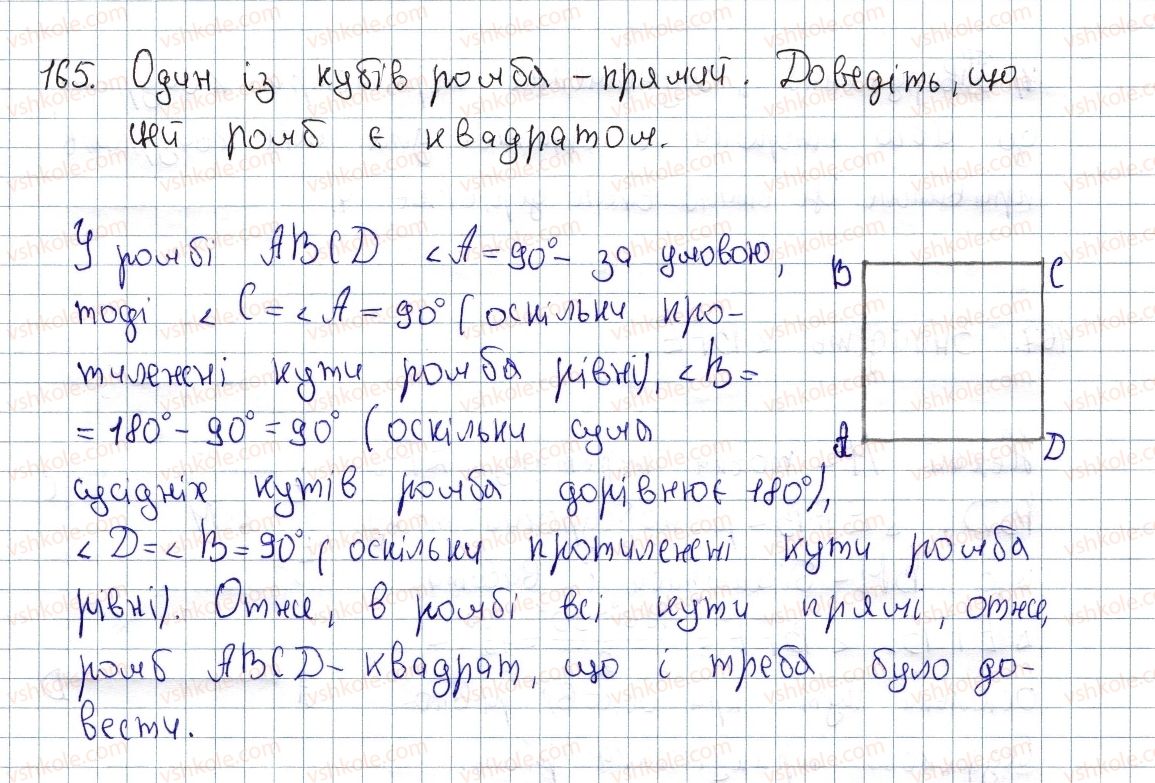 165. Один із кубів ромба - прямий. Доведіть, що
цей ромб є квадратом.
У ромбі ABCD ∠A = 90° - за умовою,
тоді ∠C = ∠A = 90° (оскільки про-
тилежні кути ромба рівні), ∠B =
= 180° - 90° = 90° (оскільки сума
сусідніх кутів ромба дорівнює 180°),
∠D = ∠B = 90° (оскільки протилежні кути ромба
рівні). Отже, в ромбі всі кути прямі, отже,
ромб ABCD - квадрат, що і треба було до-
вести.
B C
A D